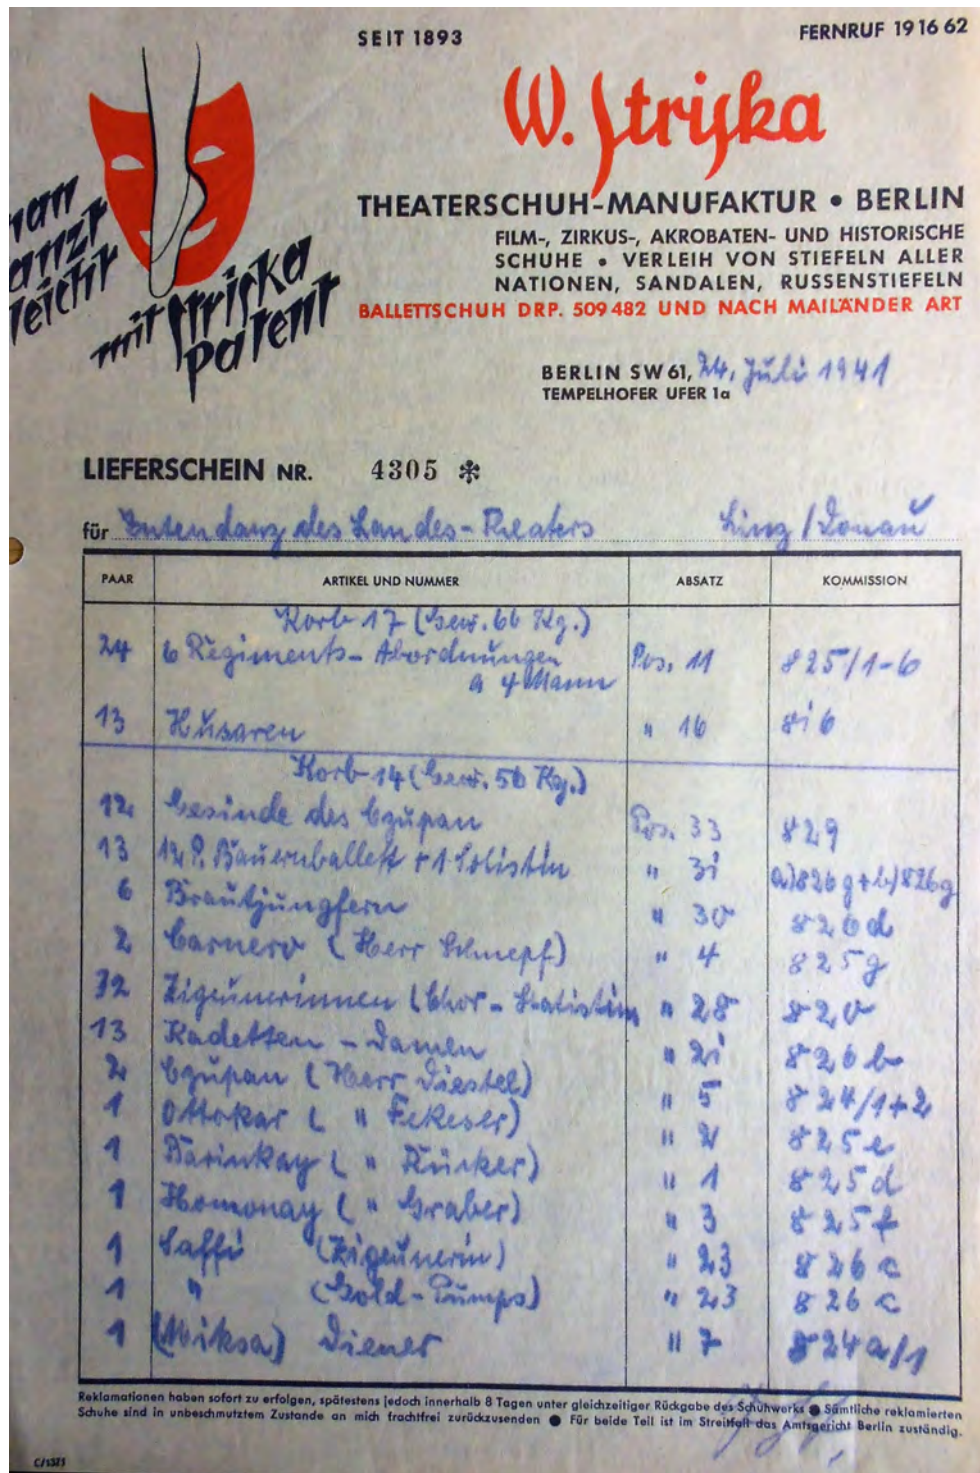 SEIT 1893
FERNRUF 19 16 62
W. Striska
THEATERSCHUH-MANUFAKTUR • BERLIN
FILM-, ZIRKUS-, AKROBATEN- UND HISTORISCHE
SCHUHE • VERLEIH VON STIEFELN ALLER
NATIONEN, SANDALEN, RUSSENSTIEFELN
BALLETTSCHUH DRP. 509482 UND NACH MAILÄNDER ART
leicht
mit Striska
patent
BERLIN SW 61, 24. Juli 1941
TEMPELHOFER UFER 1a
LIEFERSCHEIN NR. 4305 ✻
für Intendanz des Landes-Theaters Linz/Donau
PAAR ARTIKEL UND NUMMER ABSATZ KOMMISSION
Korb 17 (Gew. 66 Kg.)
24 6 Regiments-Abordnungen Pos. 11 825/1-6
a 4 Mann
13 Husaren " 16
Korb 14 (Gew. 56 Kg.)
12 Gesinde des Czupan Pos. 33 829
13 12 P. Bauernballett + 1 Solistin " 31 a) 826g + b) 826g
6 Brautjungfern " 30 826d
2 Carnero (Herr Schnepf) " 4 825g
32 Zigeunerinnen (Chor - Statistin " 28 820
13 Kadetten - Damen " 21 826b
2 Czupan (Herr Diestel) " 5 824/1+2
1 Ottokar ( " Fekeser) " 2 825e
1 Barinkay ( " Rücker) " 1 825d
1 Homonay ( " Graber) " 3 825f
1 Saffi (Zigeunerin) " 23 826c
1 " (Gold-Pumps) " 23 826c
1 (Miksa) Diener " 7 824a/1
Reklamationen haben sofort zu erfolgen, spätestens jedoch innerhalb 8 Tagen unter gleichzeitiger Rückgabe des Schuhwerks ● Sämtliche reklamierten
Schuhe sind in unbeschmutztem Zustande an mich frachtfrei zurückzusenden ● Für beide Teil ist im Streitfall das Amtsgericht Berlin zuständig.
C/1321